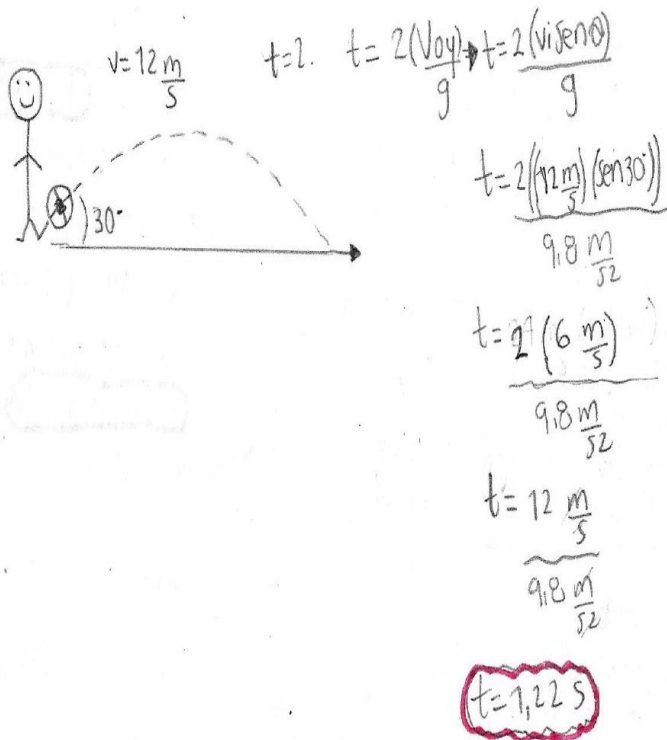 v=12 m/s t=?. t= 2(Voy)/g → t= 2(vi senθ)/g
30°
t= 2((12 m/s)(sen30°))/9,8 m/s2
t= 2(6 m/s)/9,8 m/s2
t= 12 m/s/9,8 m/s2
t=1,22 s